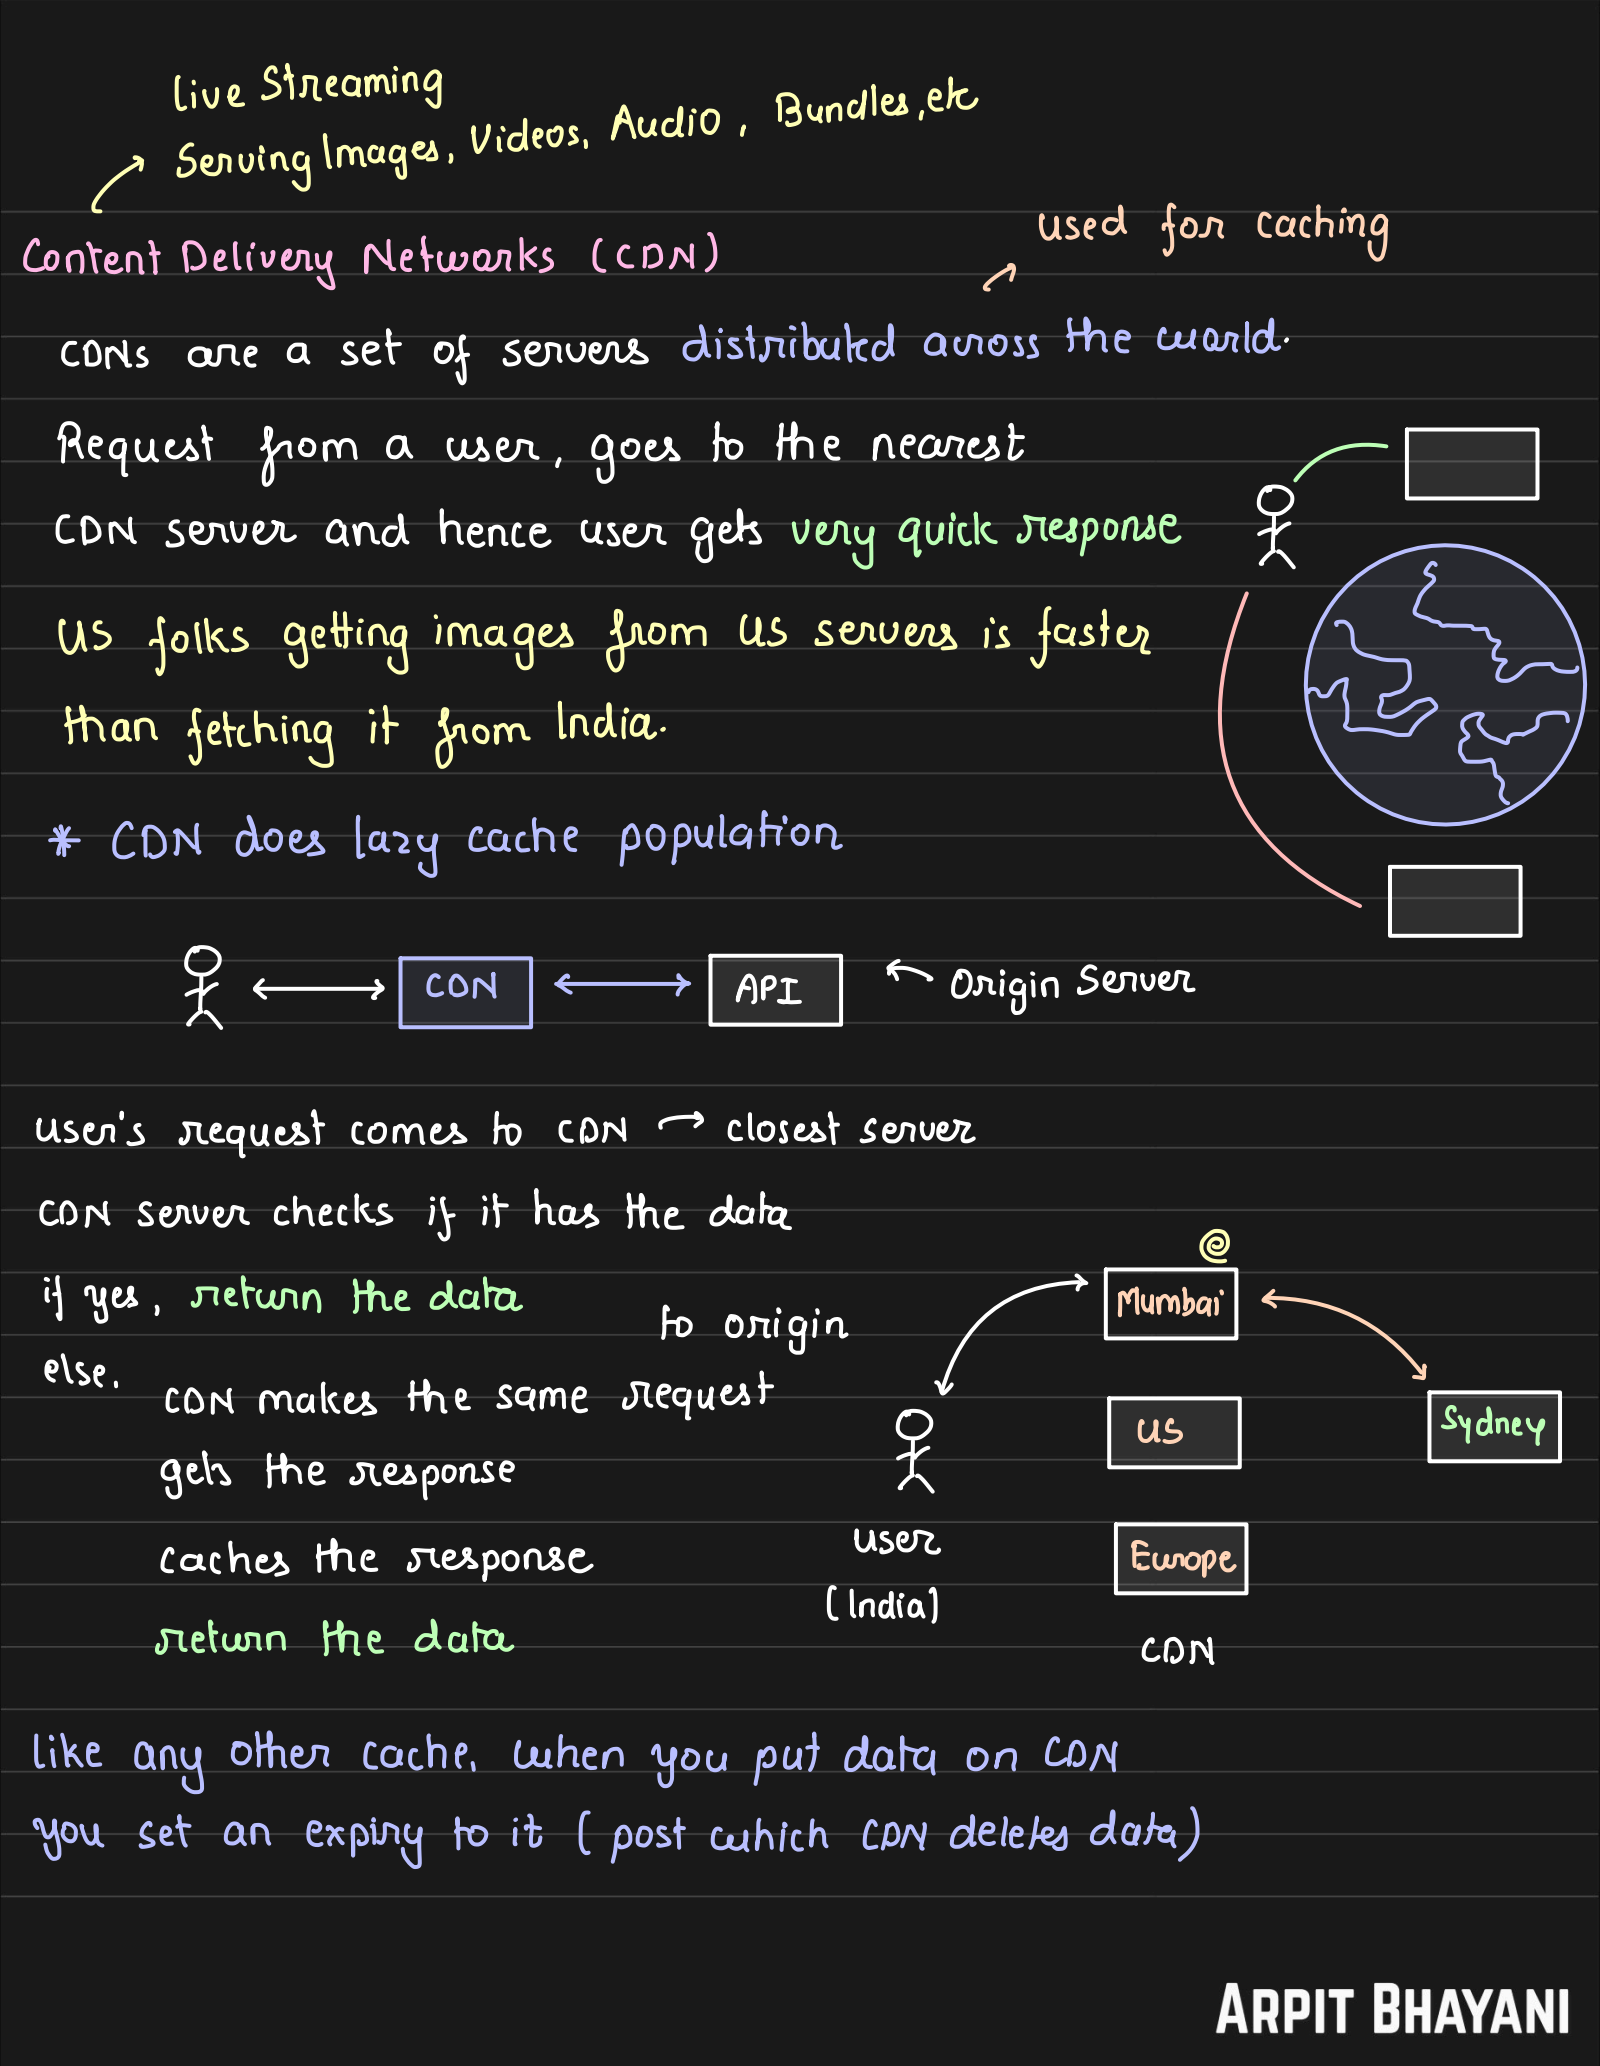 Live Streaming
Serving Images, Videos, Audio, Bundles, etc
Content Delivery Networks (CDN)
used for caching
CDNs are a set of servers distributed across the world.
Request from a user, goes to the nearest
CDN server and hence user gets very quick response
US folks getting images from US servers is faster
than fetching it from India.
* CDN does lazy cache population
CDN
API
Origin Server
user's request comes to CDN → closest server
CDN server checks if it has the data
if yes, return the data
else.
to origin
CDN makes the same request
gets the response
caches the response
return the data
Mumbai
US
Europe
CDN
Sydney
user
(India)
like any other cache, when you put data on CDN
you set an expiry to it (post which CDN deletes data)
ARPIT BHAYANI